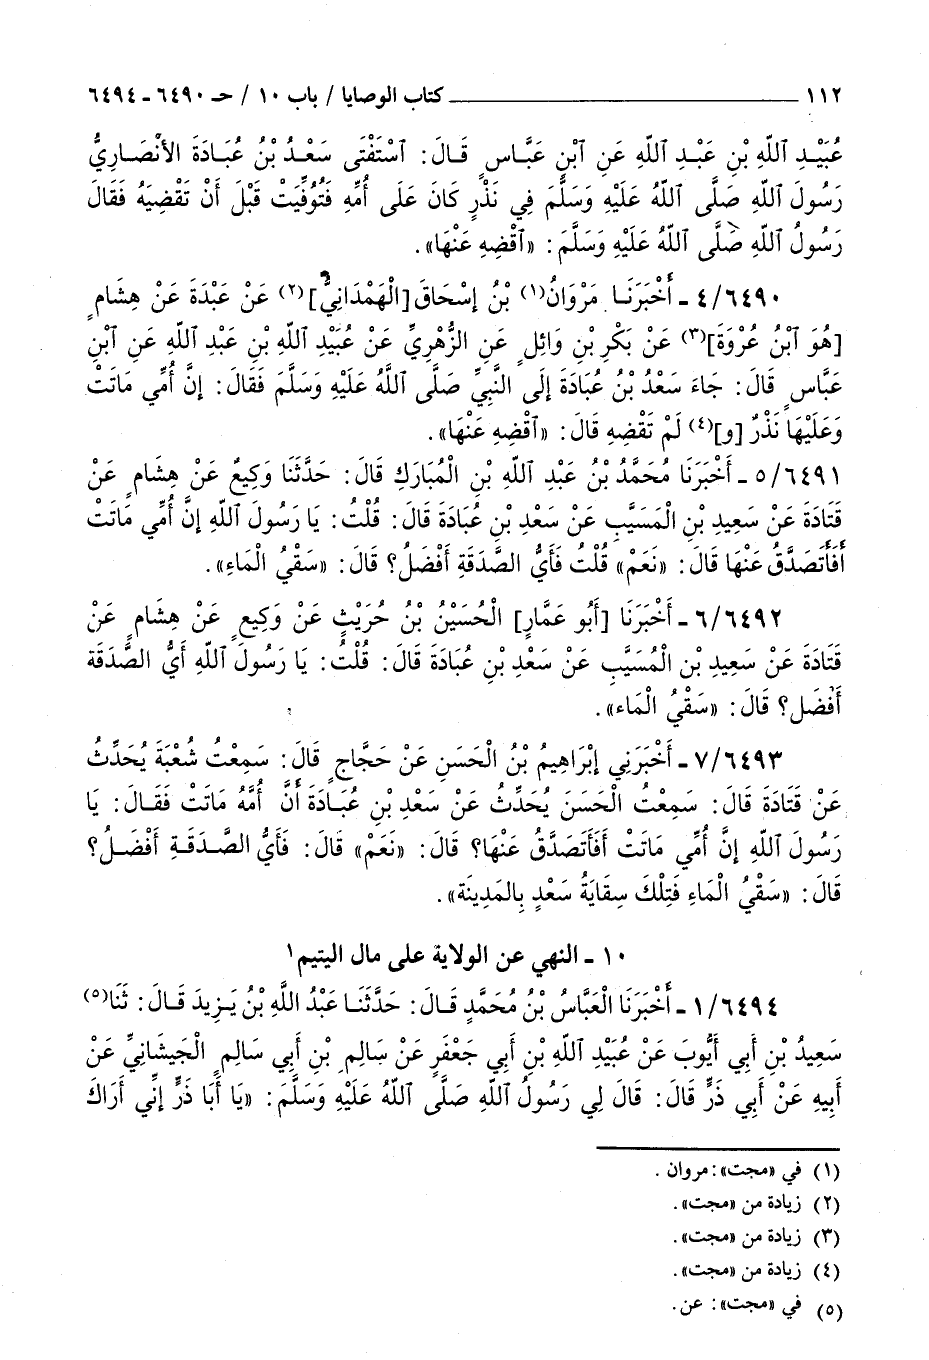 ١١٢ ــــــــــــــــــــــــــــــــــــ كتاب الوصايا / باب ١٠ / حـ ٦٤٩٠ - ٦٤٩٤
عُبَيْدِ ٱللَّهِ بْنِ عَبْدِ ٱللَّهِ عَنِ ٱبْنِ عَبَّاسٍ قَالَ: ٱسْتَفْتَى سَعْدُ بْنُ عُبَادَةَ الأَنْصَارِيُّ
رَسُولَ ٱللَّهِ صَلَّى ٱللَّهُ عَلَيْهِ وَسَلَّمَ فِي نَذْرٍ كَانَ عَلَى أُمِّهِ فَتُوُفِّيَتْ قَبْلَ أَنْ تَقْضِيَهُ فَقَالَ
رَسُولُ ٱللَّهِ صَلَّى ٱللَّهُ عَلَيْهِ وَسَلَّمَ: «ٱقْضِهِ عَنْهَا».
٤/٦٤٩٠ - أَخْبَرَنَا مَرْوَانُ(١) بْنُ إِسْحَاقَ [الْهَمْدَانِيُّ](٢) عَنْ عَبْدَةَ عَنْ هِشَامٍ
[هُوَ ٱبْنُ عُرْوَةَ](٣) عَنْ بَكْرِ بْنِ وَائِلٍ عَنِ الزُّهْرِيِّ عَنْ عُبَيْدِ ٱللَّهِ بْنِ عَبْدِ ٱللَّهِ عَنِ ٱبْنِ
عَبَّاسٍ قَالَ: جَاءَ سَعْدُ بْنُ عُبَادَةَ إِلَى النَّبِيِّ صَلَّى ٱللَّهُ عَلَيْهِ وَسَلَّمَ فَقَالَ: إِنَّ أُمِّي مَاتَتْ
وَعَلَيْهَا نَذْرٌ [وَ](٤) لَمْ تَقْضِهِ قَالَ: «ٱقْضِهِ عَنْهَا».
٥/٦٤٩١ - أَخْبَرَنَا مُحَمَّدُ بْنُ عَبْدِ ٱللَّهِ بْنِ الْمُبَارَكِ قَالَ: حَدَّثَنَا وَكِيعٌ عَنْ هِشَامٍ عَنْ
قَتَادَةَ عَنْ سَعِيدِ بْنِ الْمَسَيَّبِ عَنْ سَعْدِ بْنِ عُبَادَةَ قَالَ: قُلْتُ: يَا رَسُولَ ٱللَّهِ إِنَّ أُمِّي مَاتَتْ
أَفَأَتَصَدَّقُ عَنْهَا قَالَ: «نَعَمْ» قُلْتُ فَأَيُّ الصَّدَقَةِ أَفْضَلُ؟ قَالَ: «سَقْيُ الْمَاءِ».
٦/٦٤٩٢ - أَخْبَرَنَا [أَبُو عَمَّارٍ] الْحُسَيْنُ بْنُ حُرَيْثٍ عَنْ وَكِيعٍ عَنْ هِشَامٍ عَنْ
قَتَادَةَ عَنْ سَعِيدِ بْنِ الْمُسَيَّبِ عَنْ سَعْدِ بْنِ عُبَادَةَ قَالَ: قُلْتُ: يَا رَسُولَ ٱللَّهِ أَيُّ الصَّدَقَةِ
أَفْضَلُ؟ قَالَ: «سَقْيُ الْمَاءِ».
٧/٦٤٩٣ - أَخْبَرَنِي إِبْرَاهِيمُ بْنُ الْحَسَنِ عَنْ حَجَّاجٍ قَالَ: سَمِعْتُ شُعْبَةَ يُحَدِّثُ
عَنْ قَتَادَةَ قَالَ: سَمِعْتُ الْحَسَنَ يُحَدِّثُ عَنْ سَعْدِ بْنِ عُبَادَةَ أَنَّ أُمَّهُ مَاتَتْ فَقَالَ: يَا
رَسُولَ ٱللَّهِ إِنَّ أُمِّي مَاتَتْ أَفَأَتَصَدَّقُ عَنْهَا؟ قَالَ: «نَعَمْ» قَالَ: فَأَيُّ الصَّدَقَةِ أَفْضَلُ؟
قَالَ: «سَقْيُ الْمَاءِ فَتِلْكَ سِقَايَةُ سَعْدٍ بِالمَدِينَةِ».
١٠ - النهي عن الولاية على مال اليتيم١
١/٦٤٩٤ - أَخْبَرَنَا الْعَبَّاسُ بْنُ مُحَمَّدٍ قَالَ: حَدَّثَنَا عَبْدُ اللَّهِ بْنُ يَزِيدَ قَالَ: ثَنَا(٥)
سَعِيدُ بْنِ أَبِي أَيُّوبَ عَنْ عُبَيْدِ ٱللَّهِ بْنِ أَبِي جَعْفَرٍ عَنْ سَالِمِ بْنِ أَبِي سَالِمٍ الْجَيشَانِيِّ عَنْ
أَبِيهِ عَنْ أَبِي ذَرٍّ قَالَ: قَالَ لِي رَسُولُ ٱللَّهِ صَلَّى ٱللَّهُ عَلَيْهِ وَسَلَّمَ: «يَا أَبَا ذَرٍّ إِنِّي أَرَاكَ
(١) في «مجت»: مروان .
(٢) زيادة من «مجت».
(٣) زيادة من «مجت».
(٤) زيادة من «مجت».
(٥) في «مجت»: عن.